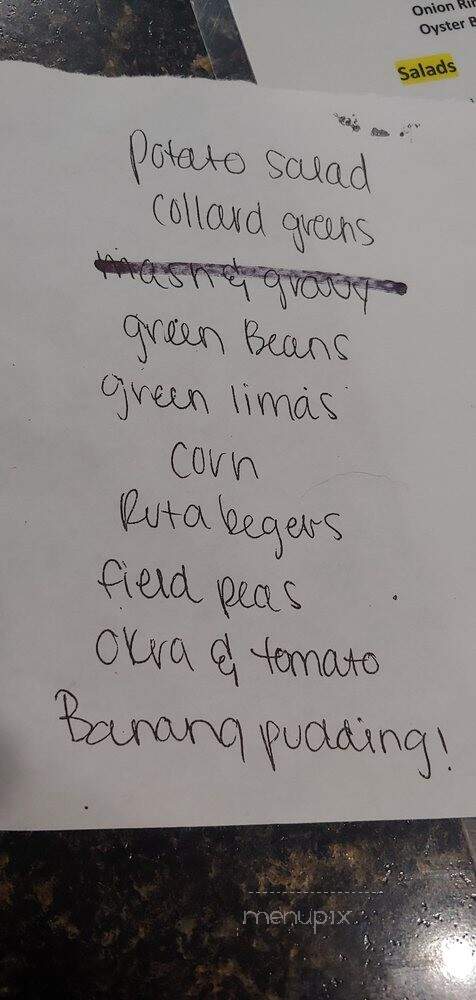 Onion Rin
Oyster B
Salads
Potato salad
collard greens
mash & gravy
green Beans
green limas
corn
Rutabegers
field peas
Okra & tomato
Banana pudding!
menupix